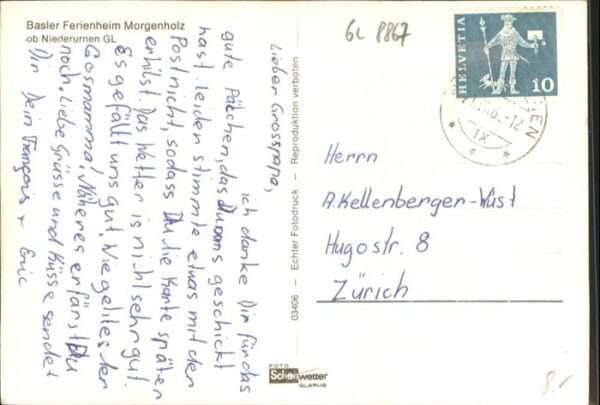 Basler Ferienheim Morgenholz
ob Niederurnen GL
GL 8867
HELVETIA
10
IX
Lieber Grosspapa,
ich danke Dir für das
gute Päckchen, das Du uns geschickt
hast. Leider stimmte etwas mit der
Post nicht, sodass Du die Karte später
erhilst. Das Wetter ist nicht sehr gut.
Es gefällt uns gut. Wie geht es der
Grosmamma? Näheres erfärst Du
noch. Liebe Grüsse und Küsse sendet
Dir Dein François + Eric
03406 – Echter Fotodruck – Reproduktion verboten
Herrn
A. Kellenberger-Wüst
Hugostr. 8
Zürich
FOTO
Schönwetter
GLARUS
8.-